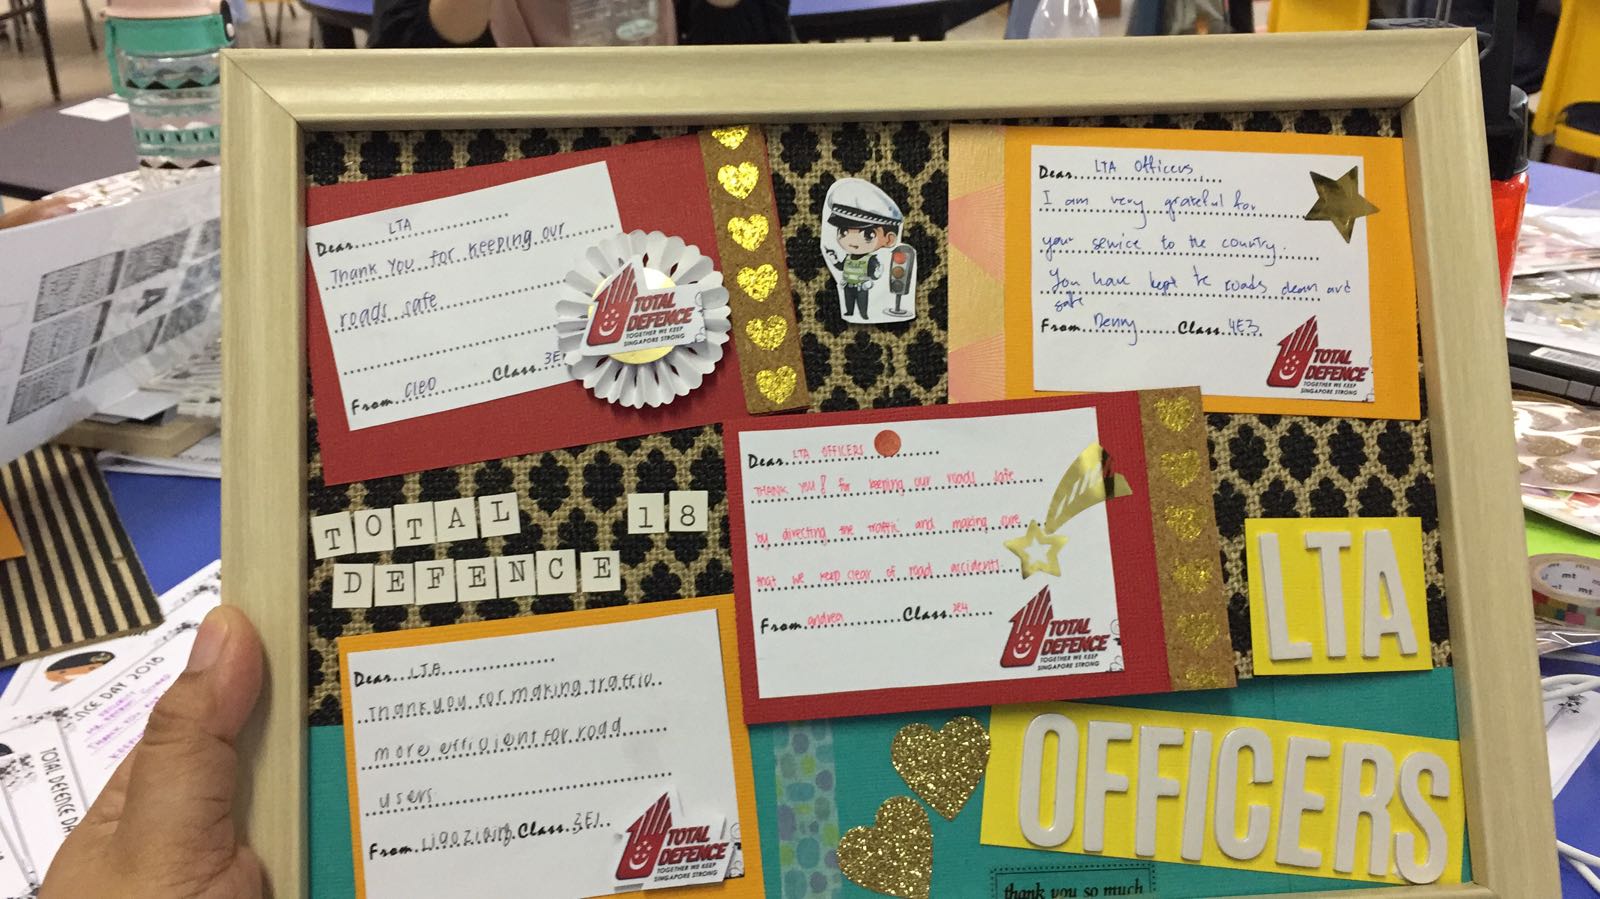 Dear LTA
Thank You for keeping our
roads safe
From CLEO Class 3E
TOTAL
DEFENCE
TOGETHER WE KEEP
SINGAPORE STRONG
Dear LTA Officers
I am very grateful for
your service to the country.
You have kept the roads clean and
safe
From Denny Class 4E3
TOTAL
DEFENCE
TOGETHER WE KEEP
SINGAPORE STRONG
TOTAL 18
DEFENCE
Dear LTA OFFICERS
THANK YOU! for keeping our roads safe
by directing the traffic and making sure
that we keep clear of road accidents.
From andrea Class 2E4
TOTAL
DEFENCE
TOGETHER WE KEEP
SINGAPORE STRONG
Dear LTA
Thank you for making traffic
more efficient for road
users.
From Class 3E1
TOTAL
DEFENCE
TOGETHER WE KEEP
SINGAPORE STRONG
LTA
OFFICERS
thank you so much
NCE DAY 2018
TOTAL DEFENCE DA
mt